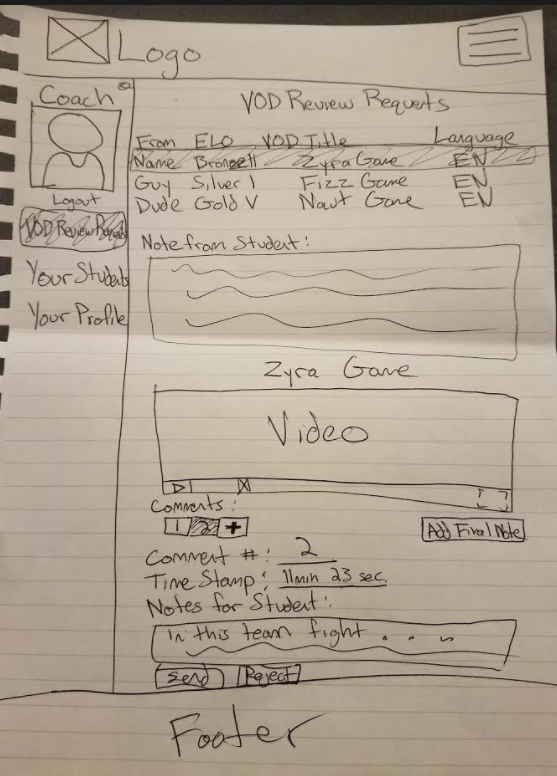 Logo
Coach
Logout
VOD Review Requests
Your Students
Your Profile
VOD Review Requests
From ELO VOD Title Language
Name Bronze II Zyra Game EN
Guy Silver I Fizz Game EN
Dude Gold V Naut Game EN
Note from Student:
Zyra Game
Video
Comments:
1 2 +
Add Final Note
Comment #: 2
Time Stamp: 11min 23 sec.
Notes for Student:
In this team fight . . .
Send Reject
Footer